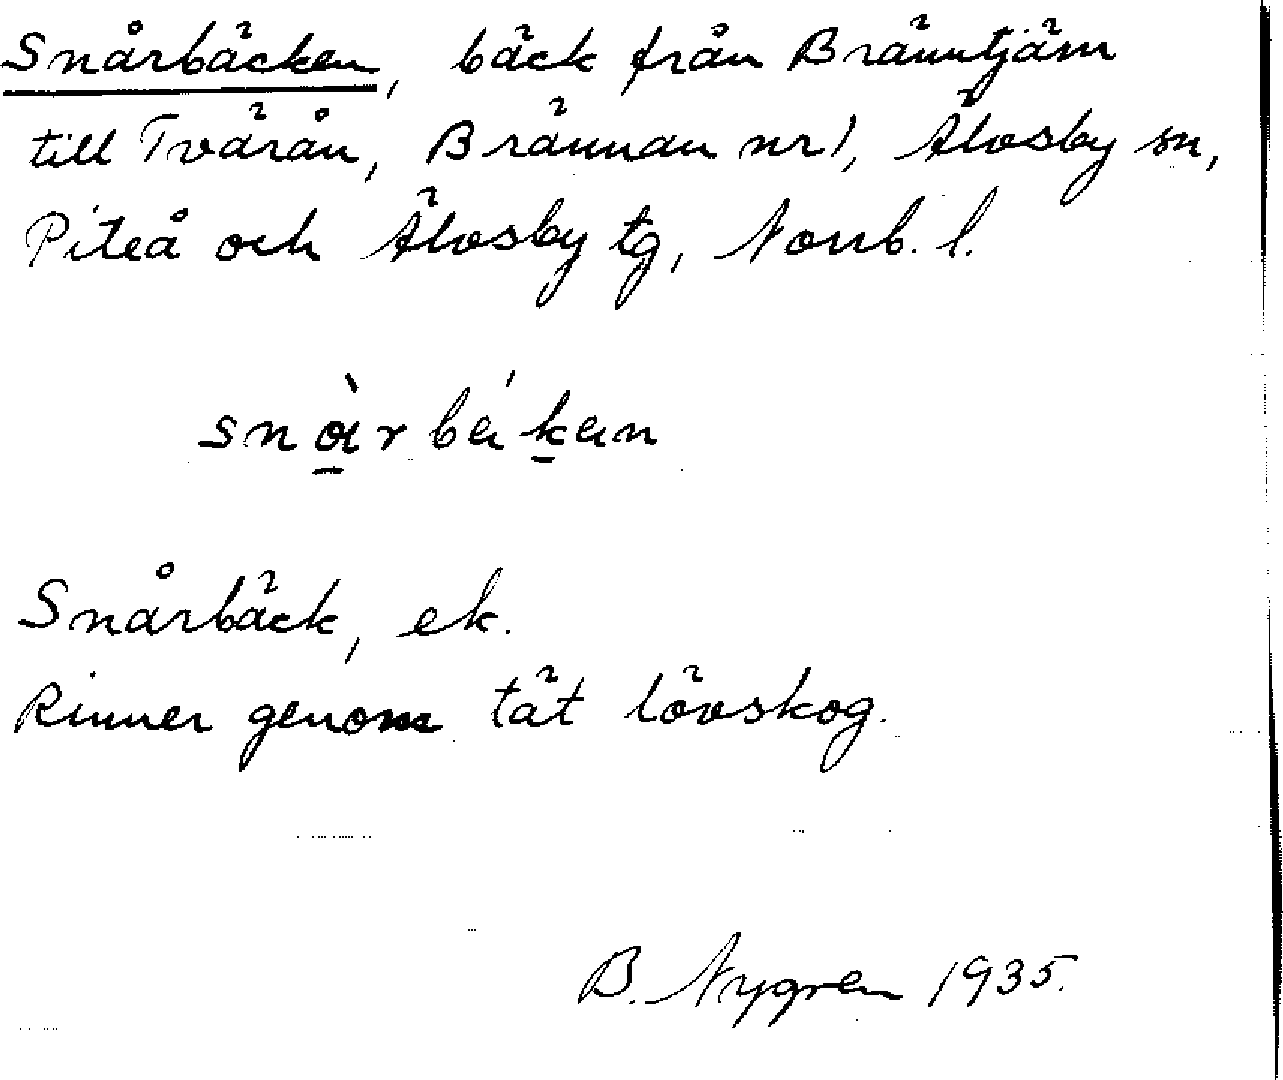 Snårbäcken, bäck från Bränntjärn
till Tvärån, Brännan nr 1, Älvsby sn,
Piteå och Älvsby tg, Norrb. l.
Snårbäck, ek.
Rinner genom tät lövskog.
B. Nygren 1935.